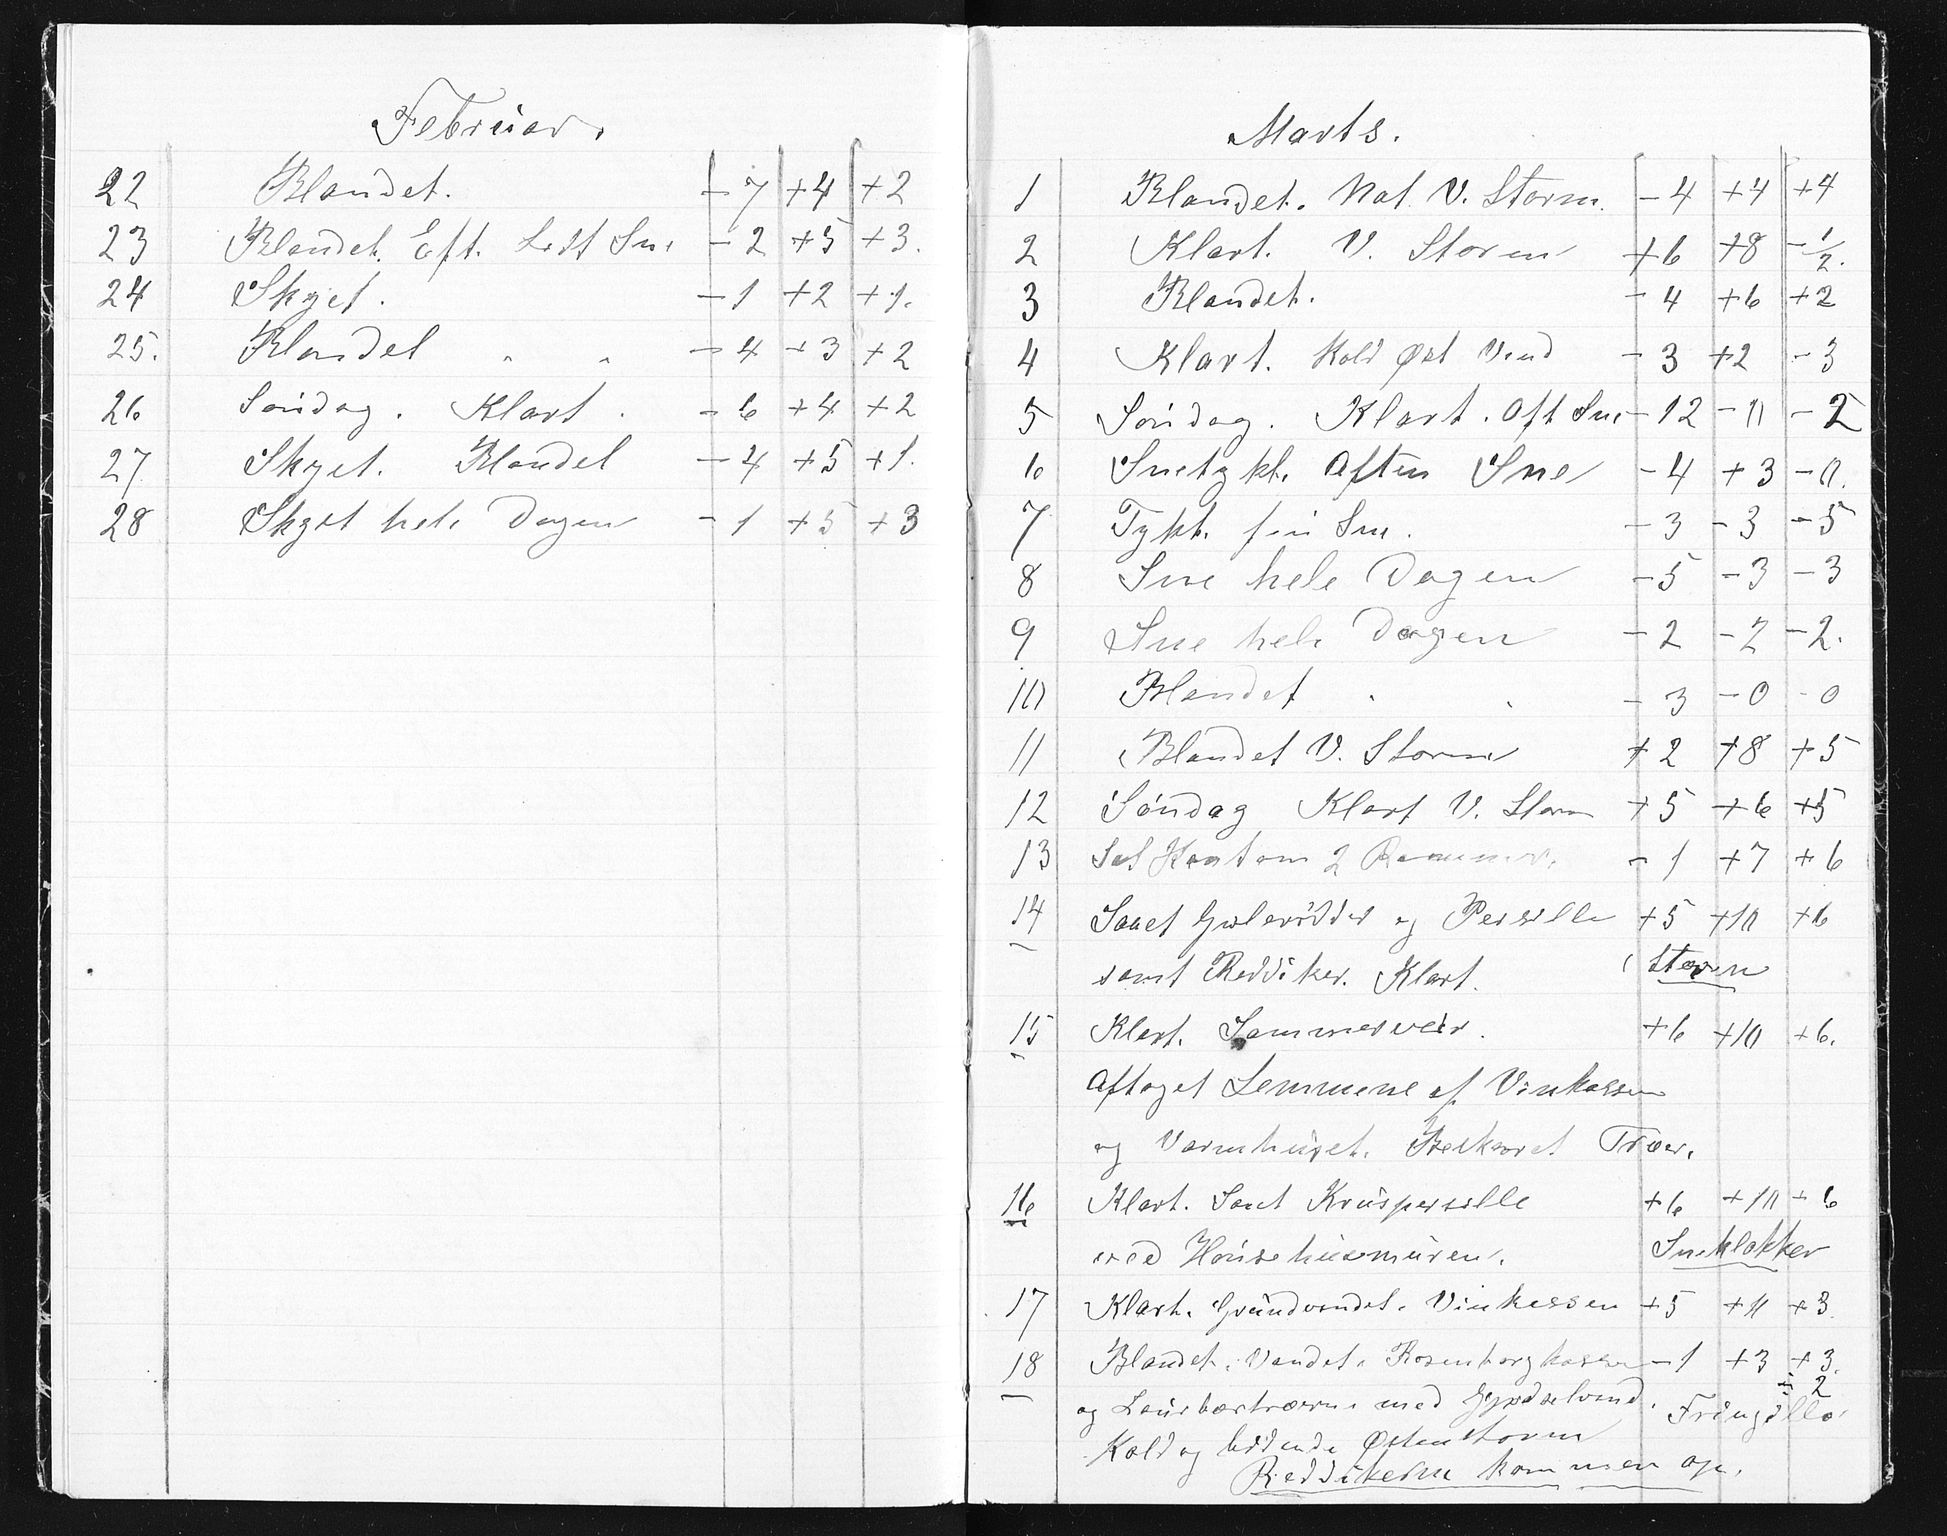 Februar.
22 Blandet. - 7 +4 +2
23 Blandet. Eft. Lidt Sne - 2 +5 +3.
24 Skyet. - 1 +2 +1.
25. Blandet " " - 4 +3 +2
26 Søndag. Klart. - 6 +4 +2
27 Skyet. Blandet - 4 +5 +1.
28 Skyet hele Dagen - 1 +5 +3
Marts.
1 Blandet. Nat V. Storm. - 4 +4 +4
2 Klart. V. Storm +6 +8 - 1/2.
3 Blandet. - 4 +6 +2
4 Klart. Kold Øst Vind - 3 +2 - 3
5 Søndag. Klart. Aft Sne - 12 - 0 - 2
6 Snetykt. Aften Sne - 4 + 3 - 0.
7 Tykt. fin Sne. - 3 - 3 - 5
8 Sne hele Dagen - 5 - 3 - 3
9 Sne hele Dagen - 2 - 2 - 2.
10 Blandet " " - 3 - 0 - 0
11 Blandet V. Storm + 2 +8 + 5
12 Søndag Klart V. Storm + 5 + 6 +5
13 Sat 2 - 1 +7 + 6
14 Saaet Gulerødder og Persille +5 +10 +6
samt Reddiker. Klart. Storm
15 Klart. Sommerveir. +6 +10 +6.
Aftaget Lemmene af Vinkassen
og Varmhuset. Beskaaret Træer.
16 Klart. Saaet Kruspersille +6 +10 + 6
ved Hønsehusmuren. Sneklokker
17 Klart. Grundvandet. Vinkassen +5 +11 + 3.
18 Blandet. Vandet. Rosenborgkassen - 1 +3 +3.
÷ 2
og Laurbærtræerne med Gjødselvand. Fringilla
Kold og bidende Østenstorm
Reddikerne kommen op.